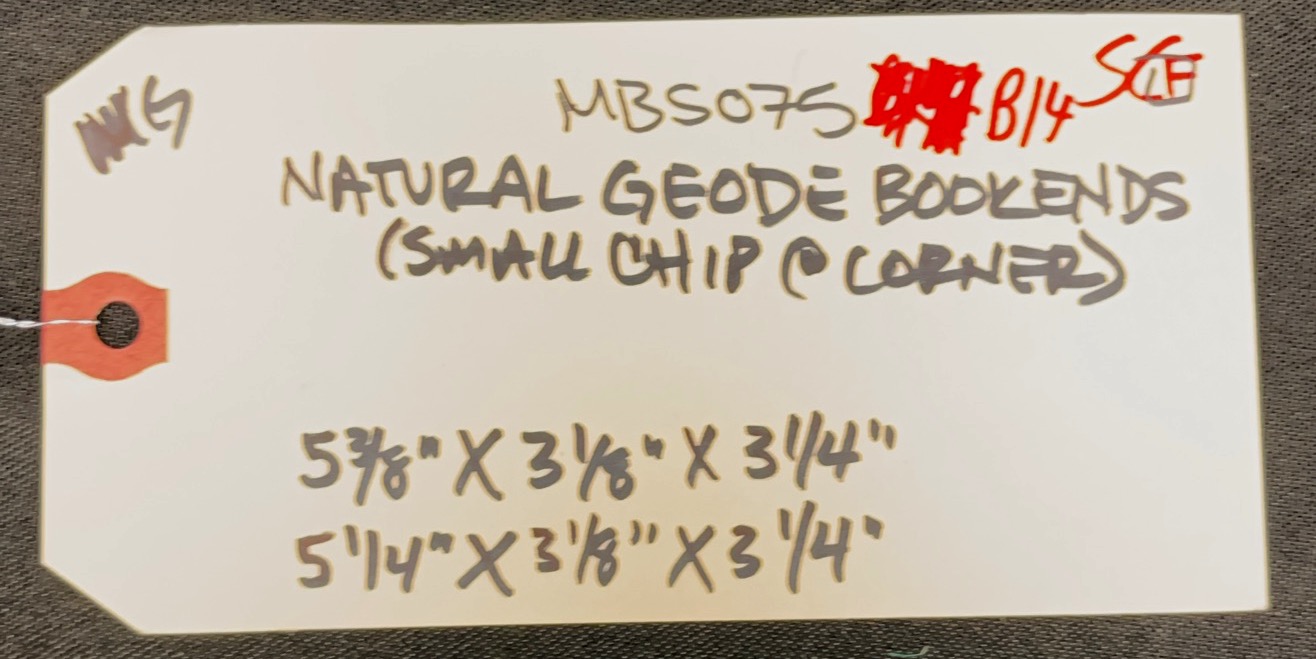 MBS075 B/4 SG LF
NATURAL GEODE BOOKENDS
(SMALL CHIP @ CORNER)
5 3/8" X 3 1/8" X 3 1/4"
5 1/4" X 3 1/8" X 3 1/4"